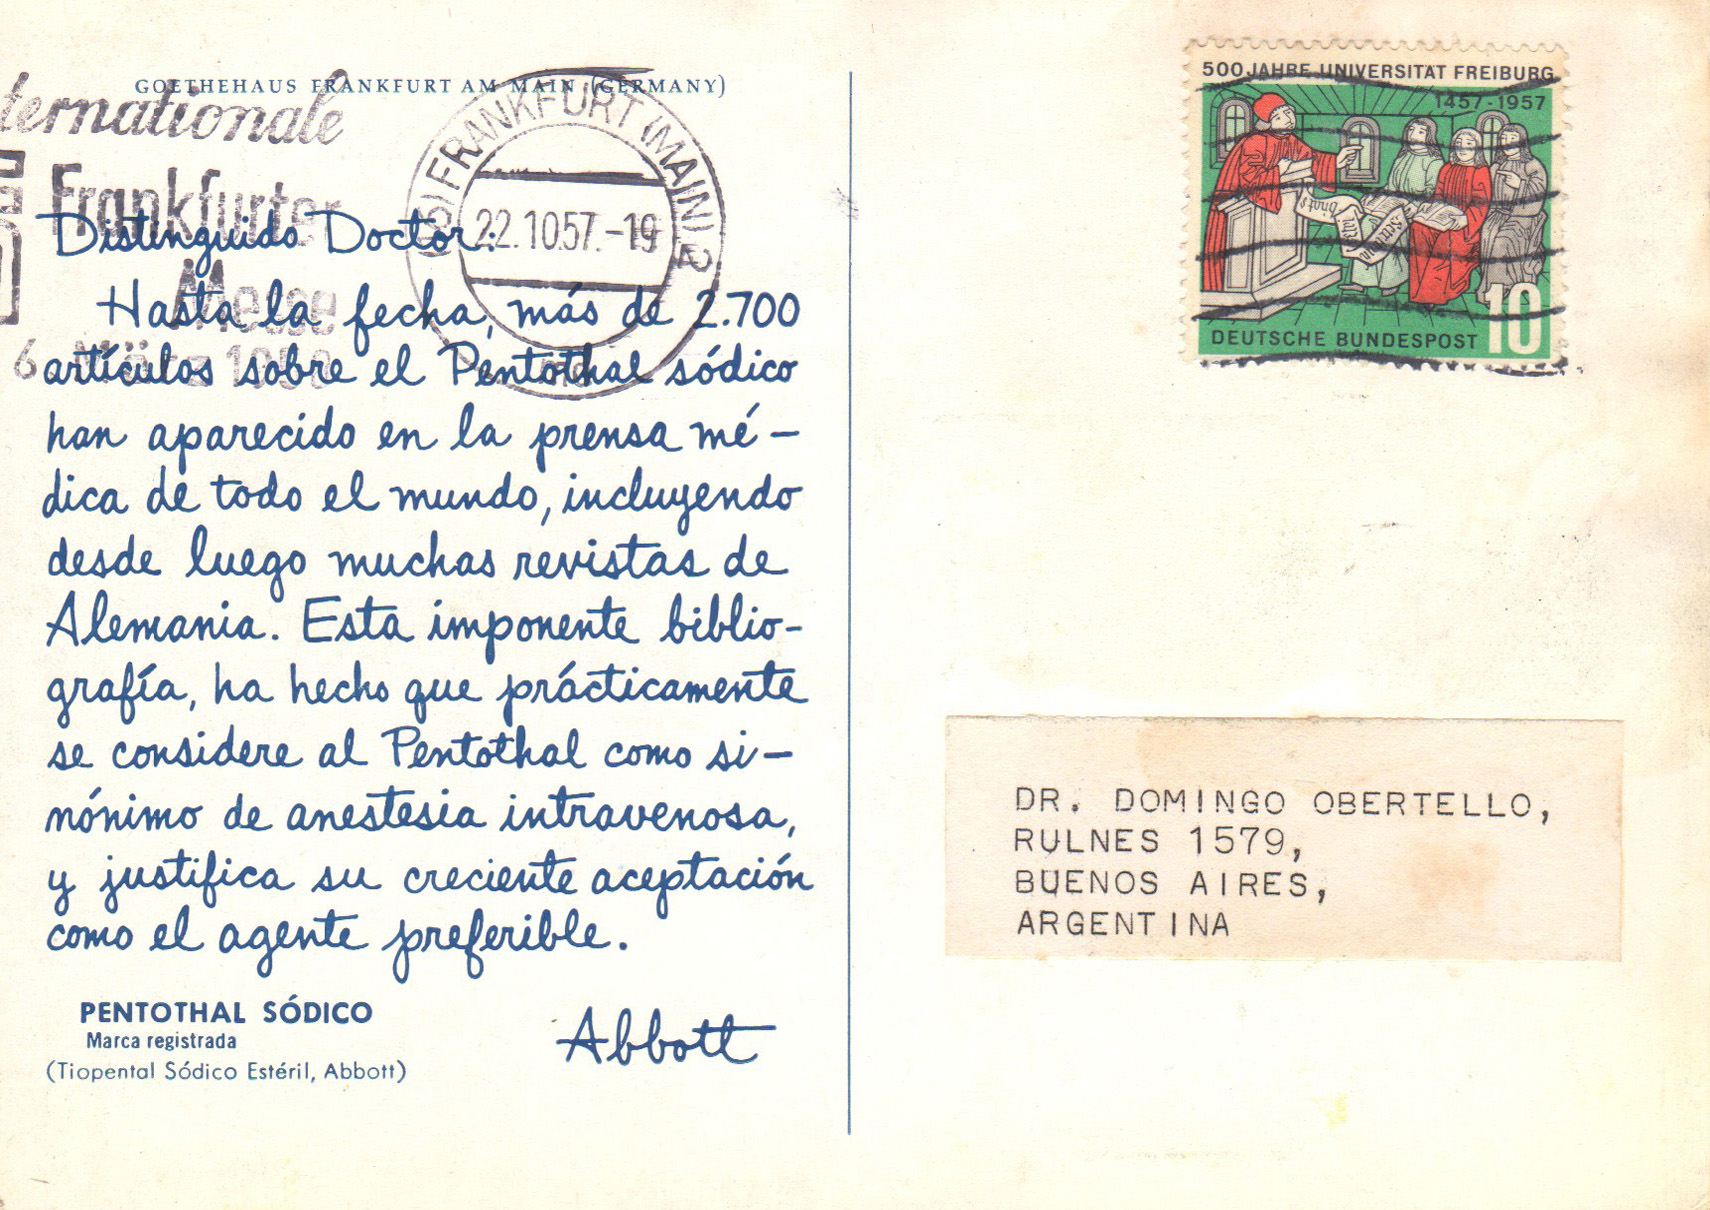 GOETHEHAUS FRANKFURT AM MAIN (GERMANY)
ternationale
Frankfurter
Messe
FRANKFURT (MAIN) 2
22.10.57.-19
Distinguido Doctor:
Hasta la fecha, más de 2.700
artículos sobre el Pentothal sódico
han aparecido en la prensa mé-
dica de todo el mundo, incluyendo
desde luego muchas revistas de
Alemania. Esta imponente biblio-
grafía, ha hecho que prácticamente
se considere al Pentothal como si-
nónimo de anestesia intravenosa,
y justifica su creciente aceptación
como el agente preferible.
PENTOTHAL SÓDICO
Marca registrada
(Tiopental Sódico Estéril, Abbott)
Abbott
500 JAHRE UNIVERSITÄT FREIBURG
1457-1957
DEUTSCHE BUNDESPOST 10
DR. DOMINGO OBERTELLO,
RULNES 1579,
BUENOS AIRES,
ARGENTINA